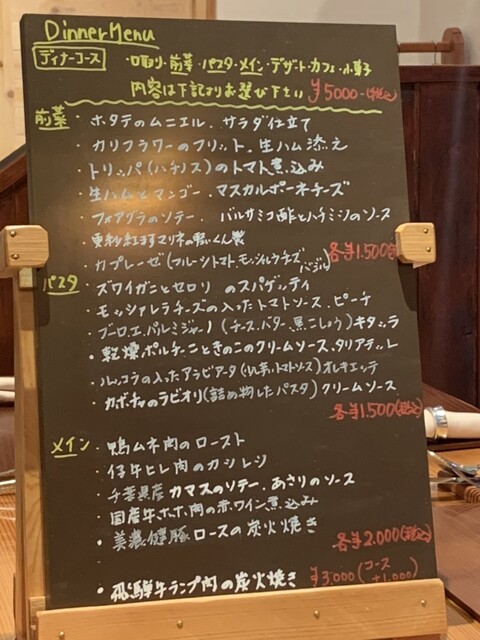 Dinner Menu
ディナーコース ・口取り・前菜・パスタ・メイン・デザート・カフェ・小菓子
内容は下記よりお選び下さい ¥5000-(税込)
前菜 ・ホタテのムニエル、サラダ仕立て
・カリフラワーのフリット、生ハム添え
・トリッパ(ハチノス)のトマト煮込み
・生ハムとマンゴー、マスカルポーネチーズ
・フォアグラのソテー、バルサミコ酢とハチミツのソース
・マリネの
・カプレーゼ(フルーツトマト、モッツァレラチーズ、バジル) 各¥1.500
パスタ ・ズワイガニとセロリ のスパゲッティ
・モッツァレラチーズの入ったトマトソース、ビーチ
・ブロ、エ、パルミジャーノ(チーズ、バター、黒こしょう)キタッラ
・乾燥ポルチーニときのこのクリームソース、タリアテッレ
・ルッコラの入ったアラビアータ(トマトソース)オレキエッテ
・カボチャのラビオリ(詰め物したパスタ)クリームソース
各¥1.500(税込)
メイン ・鴨ムネ肉のロースト
・仔牛ヒレ肉のカツレツ
・千葉県産カマスのソテー、あさりのソース
・国産牛ホホ肉の赤ワイン煮込み
・美濃健豚ロースの炭火焼き
各¥2.000(税込)
・飛騨牛ランプ肉の炭火焼き ¥3000(コース+1.000)